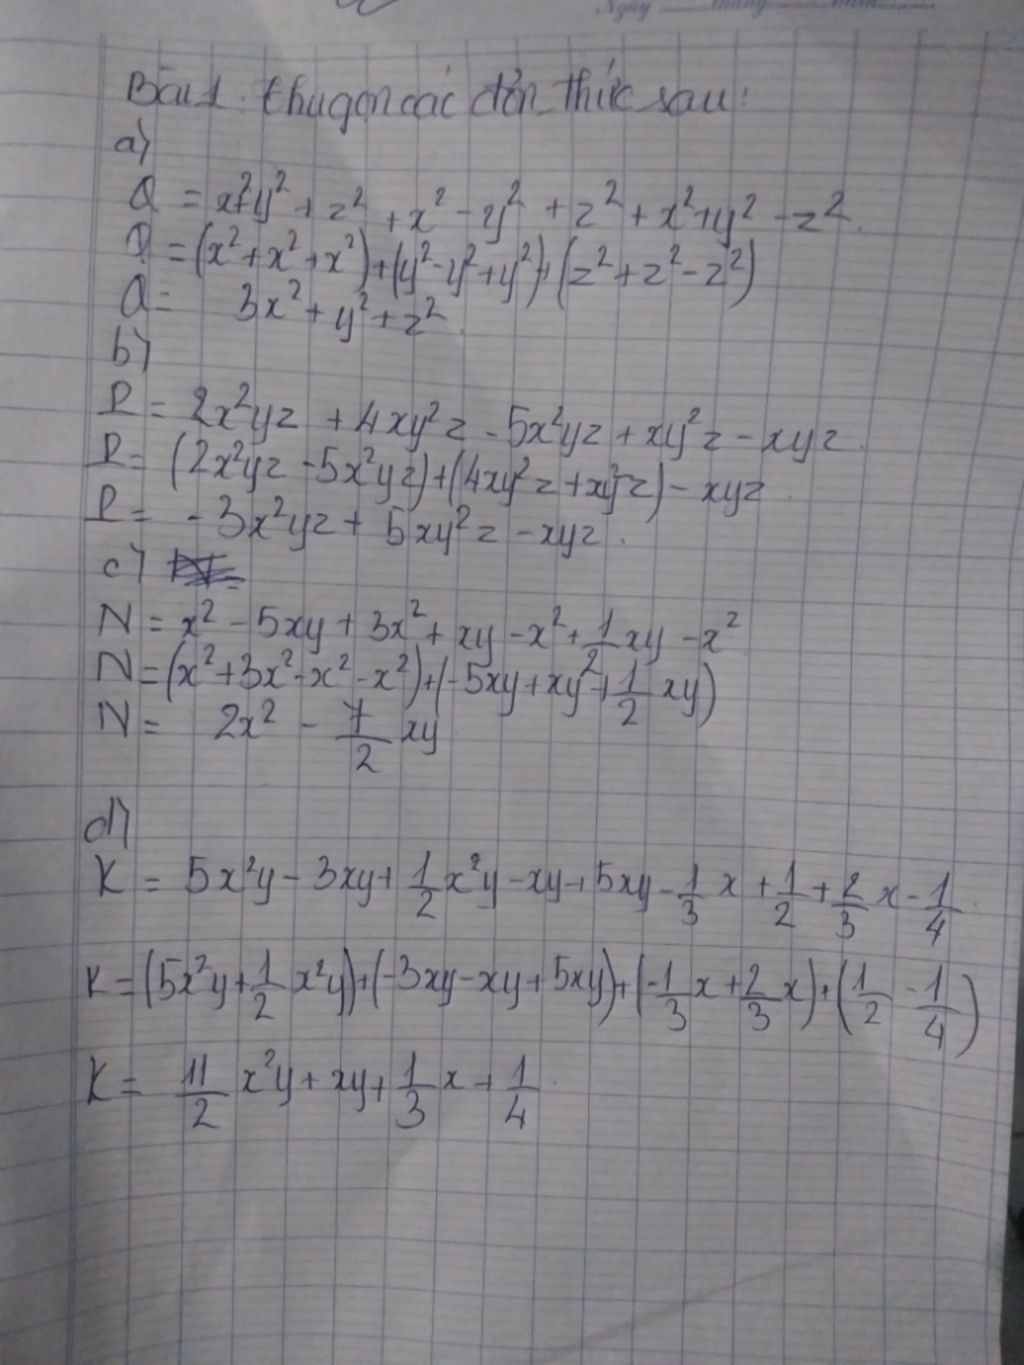 Ngày tháng năm
Bài 1. thu gọn các đơn thức sau:
a)
Q = x²+y² + z² + x² - y² + z² + x² + y² - z².
Q = (x² + x² + x²) + (y² - y² + y²) + (z² + z² - z²)
Q = 3x² + y² + z².
b)
P = 2x²yz + 4xy²z - 5x²yz + xy²z - xyz.
P = (2x²yz - 5x²yz) + (4xy²z + xy²z) - xyz
P = - 3x²yz + 5xy²z - xyz.
c)
N = x² - 5xy + 3x² + xy - x² + 1/2 xy - x²
N = (x² + 3x² - x² - x²) + (-5xy + xy + 1/2 xy)
N = 2x² - 7/2 xy
d)
K = 5x²y - 3xy + 1/2 x²y - xy + 5xy - 1/3 x + 1/2 + 2/3 x - 1/4.
K = (5x²y + 1/2 x²y) + (-3xy - xy + 5xy) + (-1/3 x + 2/3 x) + (1/2 - 1/4)
K = 11/2 x²y + xy + 1/3 x + 1/4.